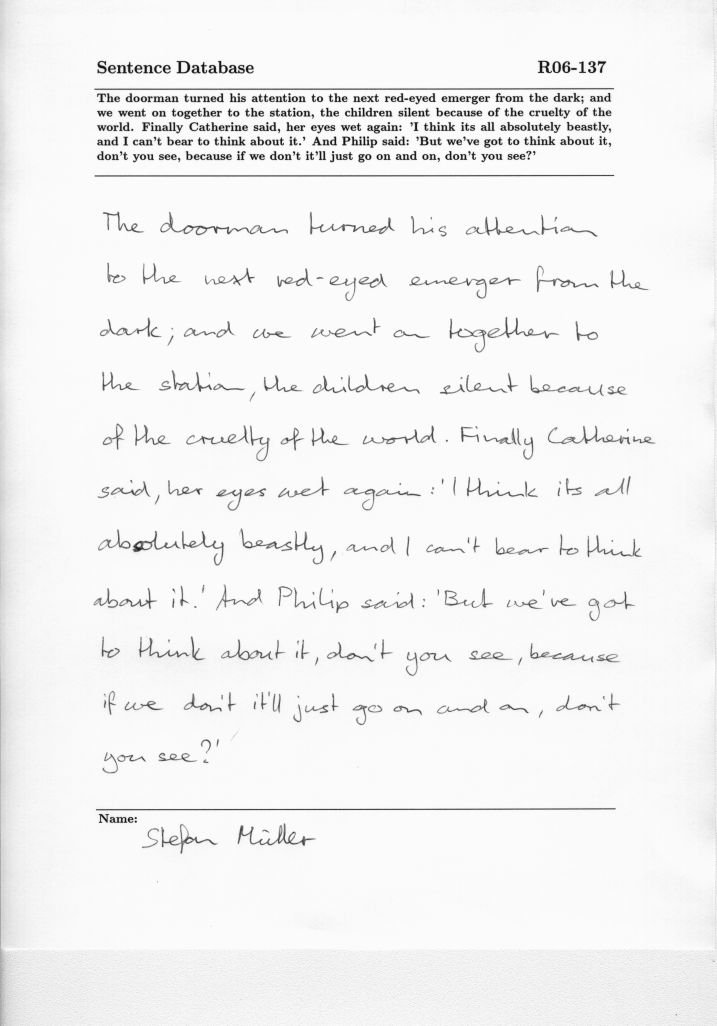 Sentence Database R06-137
The doorman turned his attention to the next red-eyed emerger from the dark; and
we went on together to the station, the children silent because of the cruelty of the
world. Finally Catherine said, her eyes wet again: 'I think its all absolutely beastly,
and I can't bear to think about it.' And Philip said: 'But we've got to think about it,
don't you see, because if we don't it'll just go on and on, don't you see?'
The doorman turned his attention
to the next red-eyed emerger from the
dark; and we went on together to
the station, the children silent because
of the cruelty of the world. Finally Catherine
said, her eyes wet again: 'I think its all
absolutely beastly, and I can't bear to think
about it.' And Philip said: 'But we've got
to think about it, don't you see, because
if we don't it'll just go on and on, don't
you see?'
Name:
Stefan Müller